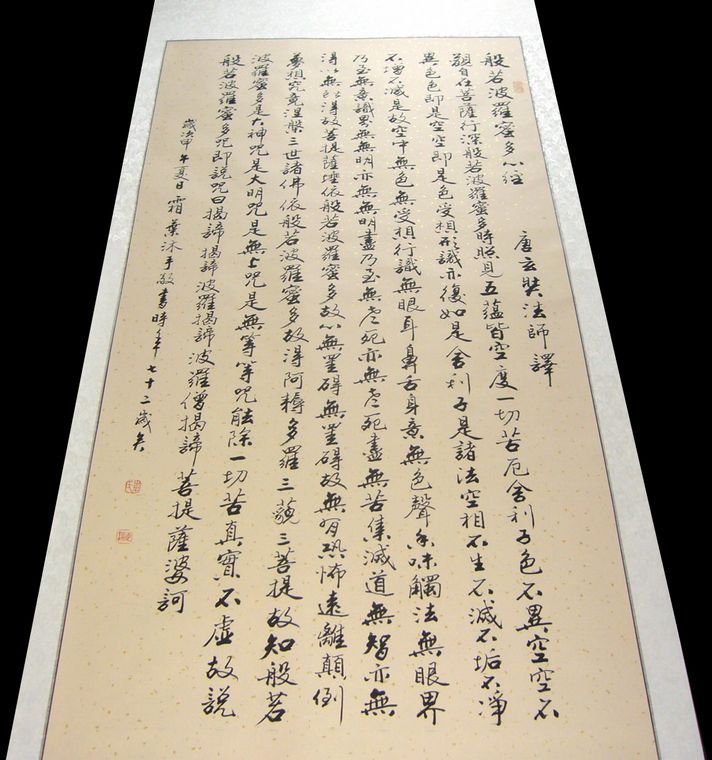 般若波羅蜜多心經 唐玄奘法師譯
觀自在菩薩行深般若波羅蜜多時照見五蘊皆空度一切苦厄舍利子色不異空空不
異色色即是空空即是色受想行識亦復如是舍利子是諸法空相不生不滅不垢不淨
不增不減是故空中無色無受想行識無眼耳鼻舌身意無色聲香味觸法無眼界
乃至無意識界無無明亦無無明盡乃至無老死亦無老死盡無苦集滅道無智亦無
得以無所得故菩提薩埵依般若波羅蜜多故心無罣礙無罣礙故無有恐怖遠離顛倒
夢想究竟涅槃三世諸佛依般若波羅蜜多故得阿耨多羅三藐三菩提故知般若
波羅蜜多是大神咒是大明咒是無上咒是無等等咒能除一切苦真實不虛故説
般若波羅蜜多咒即説咒曰揭諦揭諦波羅揭諦波羅僧揭諦菩提薩婆訶
歲次甲午夏日霜葉沐手敬書時年七十二歲矣